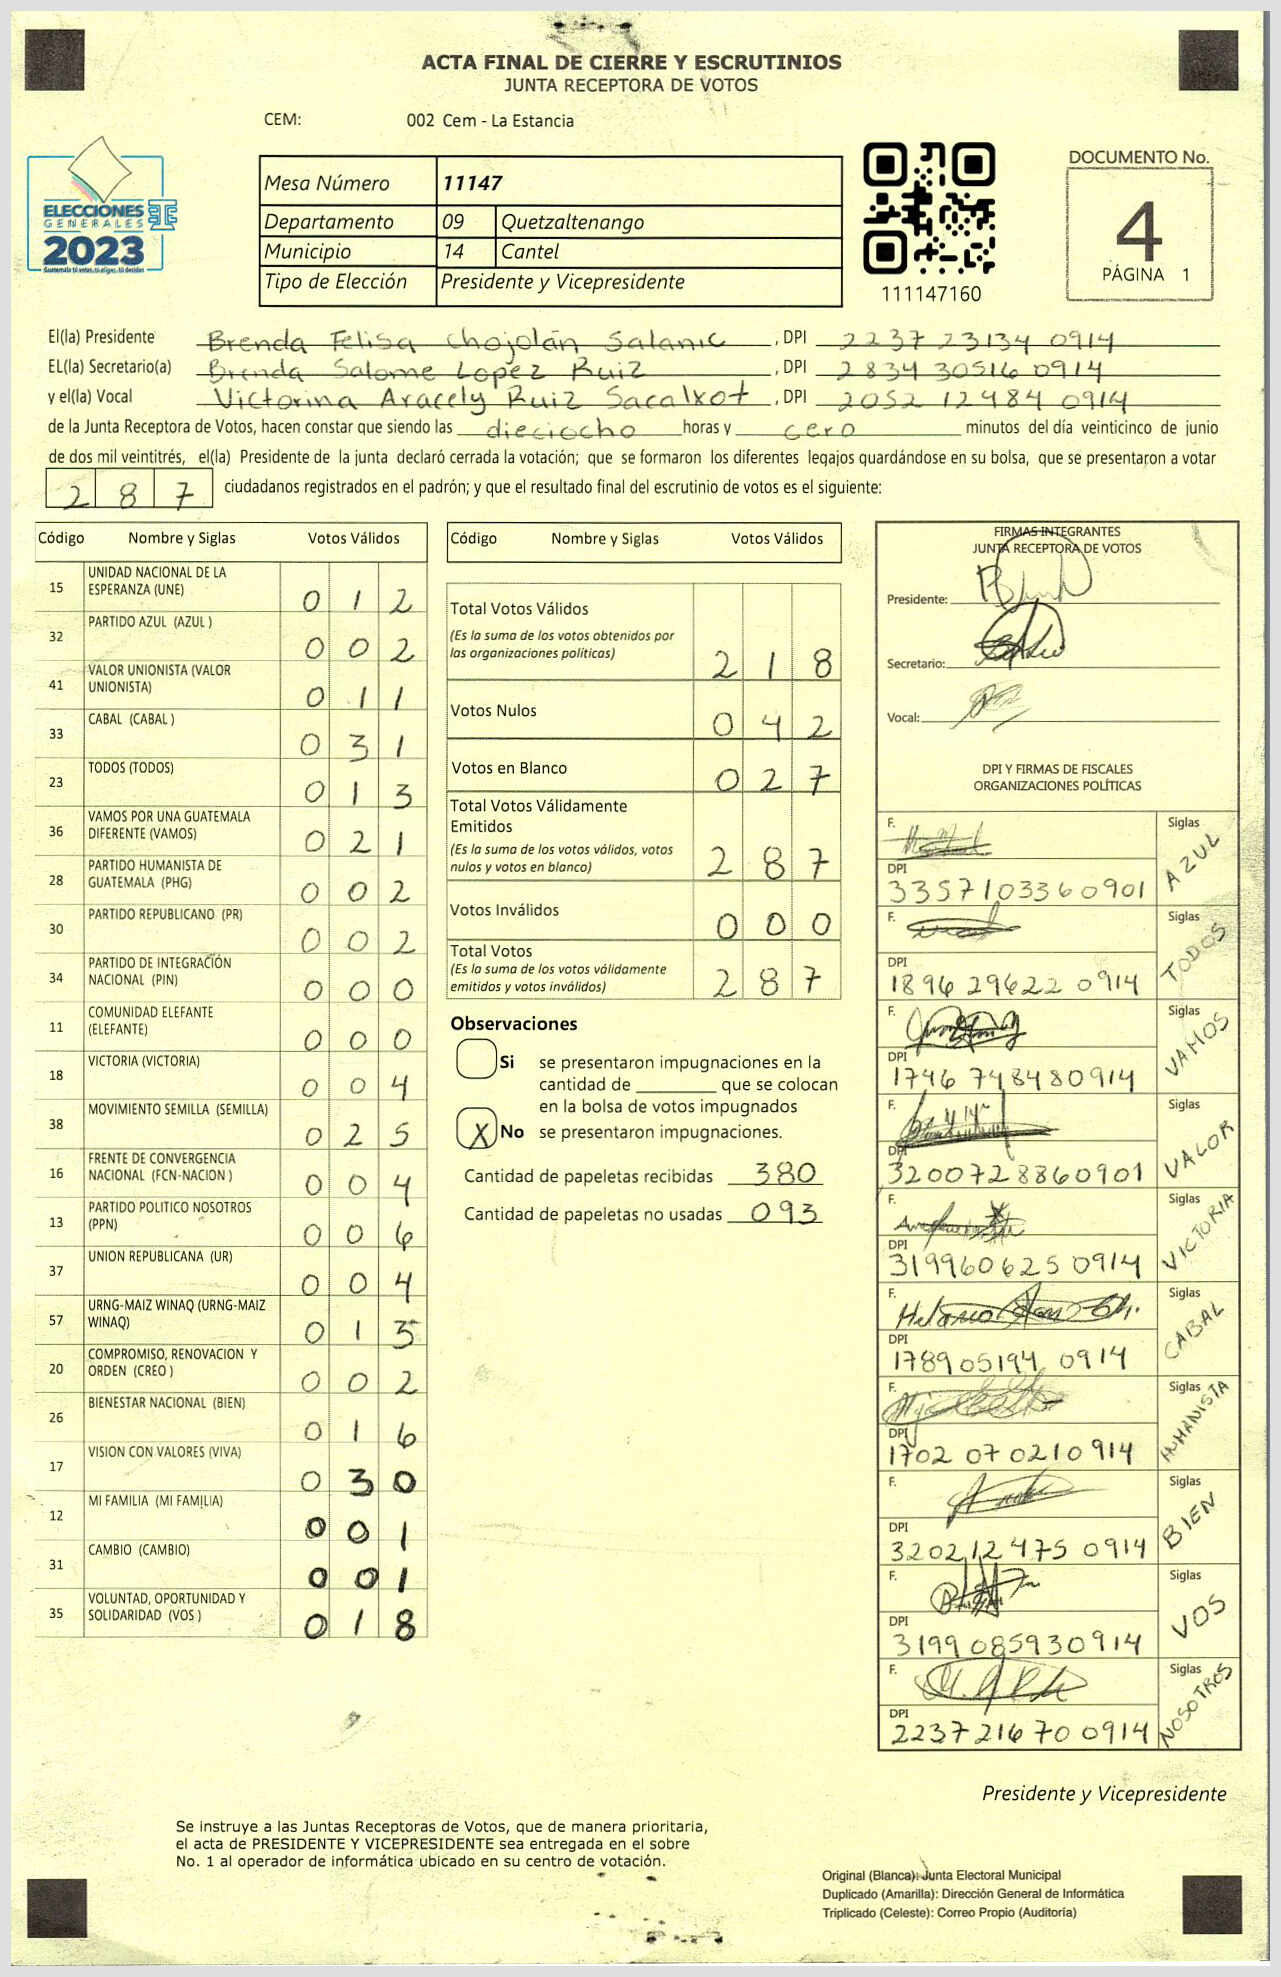 ACTA FINAL DE CIERRE Y ESCRUTINIOS
JUNTA RECEPTORA DE VOTOS
CEM: 002 Cem - La Estancia
ELECCIONES
GENERALES
2023
Guatemala tú votas, tú eliges, tú decides
Mesa Número 11147
Departamento 09 Quetzaltenango
Municipio 14 Cantel
Tipo de Elección Presidente y Vicepresidente
111147160
DOCUMENTO No.
4
PÁGINA 1
El(la) Presidente Brenda Felisa Chojolán Salanic, DPI 2237 23134 0914
EL(la) Secretario(a) Brenda Salome Lopez Ruiz, DPI 2834 30516 0914
y el(la) Vocal Victorina Aracely Ruiz Sacalxot, DPI 2052 12484 0914
de la Junta Receptora de Votos, hacen constar que siendo las dieciocho horas y cero minutos del día veinticinco de junio
de dos mil veintitrés, el(la) Presidente de la junta declaró cerrada la votación; que se formaron los diferentes legajos guardándose en su bolsa, que se presentaron a votar
287 ciudadanos registrados en el padrón; y que el resultado final del escrutinio de votos es el siguiente:
Código Nombre y Siglas Votos Válidos
15 UNIDAD NACIONAL DE LA ESPERANZA (UNE) 012
32 PARTIDO AZUL (AZUL ) 002
41 VALOR UNIONISTA (VALOR UNIONISTA) 011
33 CABAL (CABAL ) 031
23 TODOS (TODOS) 013
36 VAMOS POR UNA GUATEMALA DIFERENTE (VAMOS) 021
28 PARTIDO HUMANISTA DE GUATEMALA (PHG) 002
30 PARTIDO REPUBLICANO (PR) 002
34 PARTIDO DE INTEGRACIÓN NACIONAL (PIN) 000
11 COMUNIDAD ELEFANTE (ELEFANTE) 000
18 VICTORIA (VICTORIA) 004
38 MOVIMIENTO SEMILLA (SEMILLA) 025
16 FRENTE DE CONVERGENCIA NACIONAL (FCN-NACION ) 004
13 PARTIDO POLITICO NOSOTROS (PPN) 006
37 UNION REPUBLICANA (UR) 004
57 URNG-MAIZ WINAQ (URNG-MAIZ WINAQ) 013
20 COMPROMISO, RENOVACION Y ORDEN (CREO ) 002
26 BIENESTAR NACIONAL (BIEN) 016
17 VISION CON VALORES (VIVA) 030
12 MI FAMILIA (MI FAMILIA) 001
31 CAMBIO (CAMBIO) 001
35 VOLUNTAD, OPORTUNIDAD Y SOLIDARIDAD (VOS ) 018
Código Nombre y Siglas Votos Válidos
Total Votos Válidos
(Es la suma de los votos obtenidos por
las organizaciones políticas) 218
Votos Nulos 042
Votos en Blanco 027
Total Votos Válidamente
Emitidos
(Es la suma de los votos válidos, votos
nulos y votos en blanco) 287
Votos Inválidos 000
Total Votos
(Es la suma de los votos válidamente
emitidos y votos inválidos) 287
Observaciones
Si se presentaron impugnaciones en la
cantidad de ________ que se colocan
en la bolsa de votos impugnados
X No se presentaron impugnaciones.
Cantidad de papeletas recibidas 380
Cantidad de papeletas no usadas 093
FIRMAS INTEGRANTES
JUNTA RECEPTORA DE VOTOS
Presidente:
Secretario:
Vocal:
DPI Y FIRMAS DE FISCALES
ORGANIZACIONES POLÍTICAS
F. Siglas AZUL
DPI 3357103360901
F. Siglas TODOS
DPI 1896 29622 0914
F. Siglas VAMOS
DPI 1746 748480914
F. Siglas VALOR
DPI 3200728860901
F. Siglas VICTORIA
DPI 319960625 0914
F. Siglas CABAL
DPI 178905194 0914
F. Siglas HUMANISTA
DPI 1702 07 0210914
F. Siglas BIEN
DPI 320212475 0914
F. Siglas VOS
DPI 3199085930914
F. Siglas NOSOTROS
DPI 2237 21670 0914
Presidente y Vicepresidente
Se instruye a las Juntas Receptoras de Votos, que de manera prioritaria,
el acta de PRESIDENTE Y VICEPRESIDENTE sea entregada en el sobre
No. 1 al operador de informática ubicado en su centro de votación.
Original (Blanca): Junta Electoral Municipal
Duplicado (Amarilla): Dirección General de Informática
Triplicado (Celeste): Correo Propio (Auditoría)